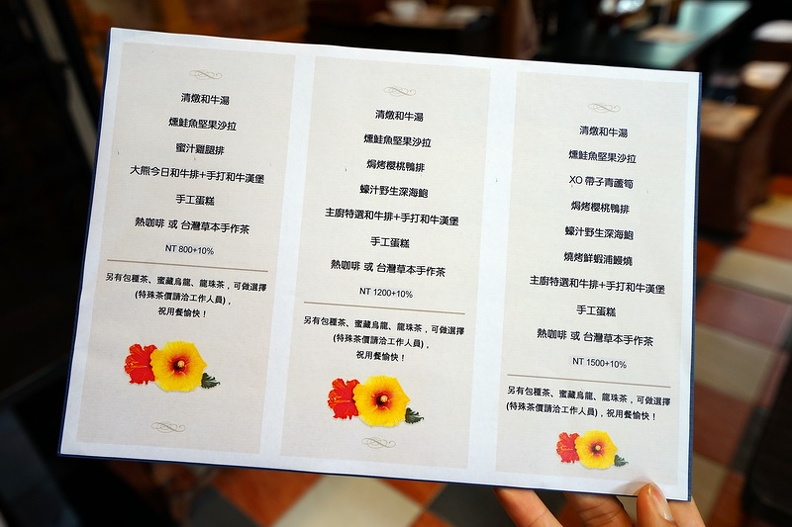 清燉和牛湯
燻鮭魚堅果沙拉
蜜汁雞腿排
大熊今日和牛排+手打和牛漢堡
手工蛋糕
熱咖啡 或 台灣草本手作茶
NT 800+10%
另有包種茶、蜜藏烏龍、龍珠茶，可做選擇
(特殊茶價請洽工作人員)，
祝用餐愉快！
清燉和牛湯
燻鮭魚堅果沙拉
焗烤櫻桃鴨排
蠔汁野生深海鮑
主廚特選和牛排+手打和牛漢堡
手工蛋糕
熱咖啡 或 台灣草本手作茶
NT 1200+10%
另有包種茶、蜜藏烏龍、龍珠茶，可做選擇
(特殊茶價請洽工作人員)，
祝用餐愉快！
清燉和牛湯
燻鮭魚堅果沙拉
XO 帶子青蘆筍
焗烤櫻桃鴨排
蠔汁野生深海鮑
燒烤鮮蝦浦鰻燒
主廚特選和牛排+手打和牛漢堡
手工蛋糕
熱咖啡 或 台灣草本手作茶
NT 1500+10%
另有包種茶、蜜藏烏龍、龍珠茶，可做選擇
(特殊茶價請洽工作人員)，祝用餐愉快！